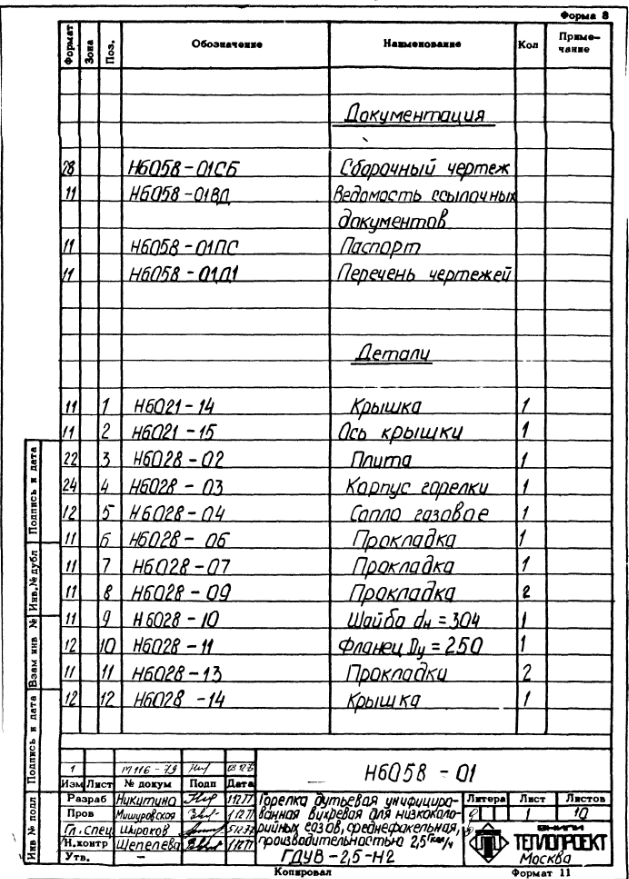 Форма 8
Формат Зона Поз. Обозначение Наименование Кол Приме-
чание
Документация
28 Н6058-01СБ Сборочный чертеж
11 Н6058-01ВД Ведомость ссылочных
документов
11 Н6058-01ПС Паспорт
11 Н6058-01Д1 Перечень чертежей
Детали
11 1 Н6021-14 Крышка 1
11 2 Н6021-15 Ось крышки 1
22 3 Н6028-02 Плита 1
24 4 Н6028-03 Корпус горелки 1
12 5 Н6028-04 Сопло газовое 1
11 6 Н6028-06 Прокладка 1
11 7 Н6028-07 Прокладка 1
11 8 Н6028-09 Прокладка 2
11 9 Н6028-10 Шайба dн = 304 1
12 10 Н6028-11 Фланец Dу = 250 1
11 11 Н6028-13 Прокладки 2
12 12 Н6028-14 Крышка 1
Инв № подл Подпись и дата Взам инв № Инв.№ дубл Подпись и дата
1
Изм Лист № докум Подп Дата
Н6058-01
Разраб Никитина
Пров Мишуровская
Гл. спец Широков
Н.контр Шепелева
Утв. -
Горелка дутьевая унифициро-
ванная вихревая для низкокало-
рийных газов, среднефакельная,
производительностью 2,5 Гкал/ч
ГДУВ-2,5-Н2
Литера Лист Листов
1 10
ВНИПИ
ТЕПЛОПРОЕКТ
Москва
Копировал Формат 11